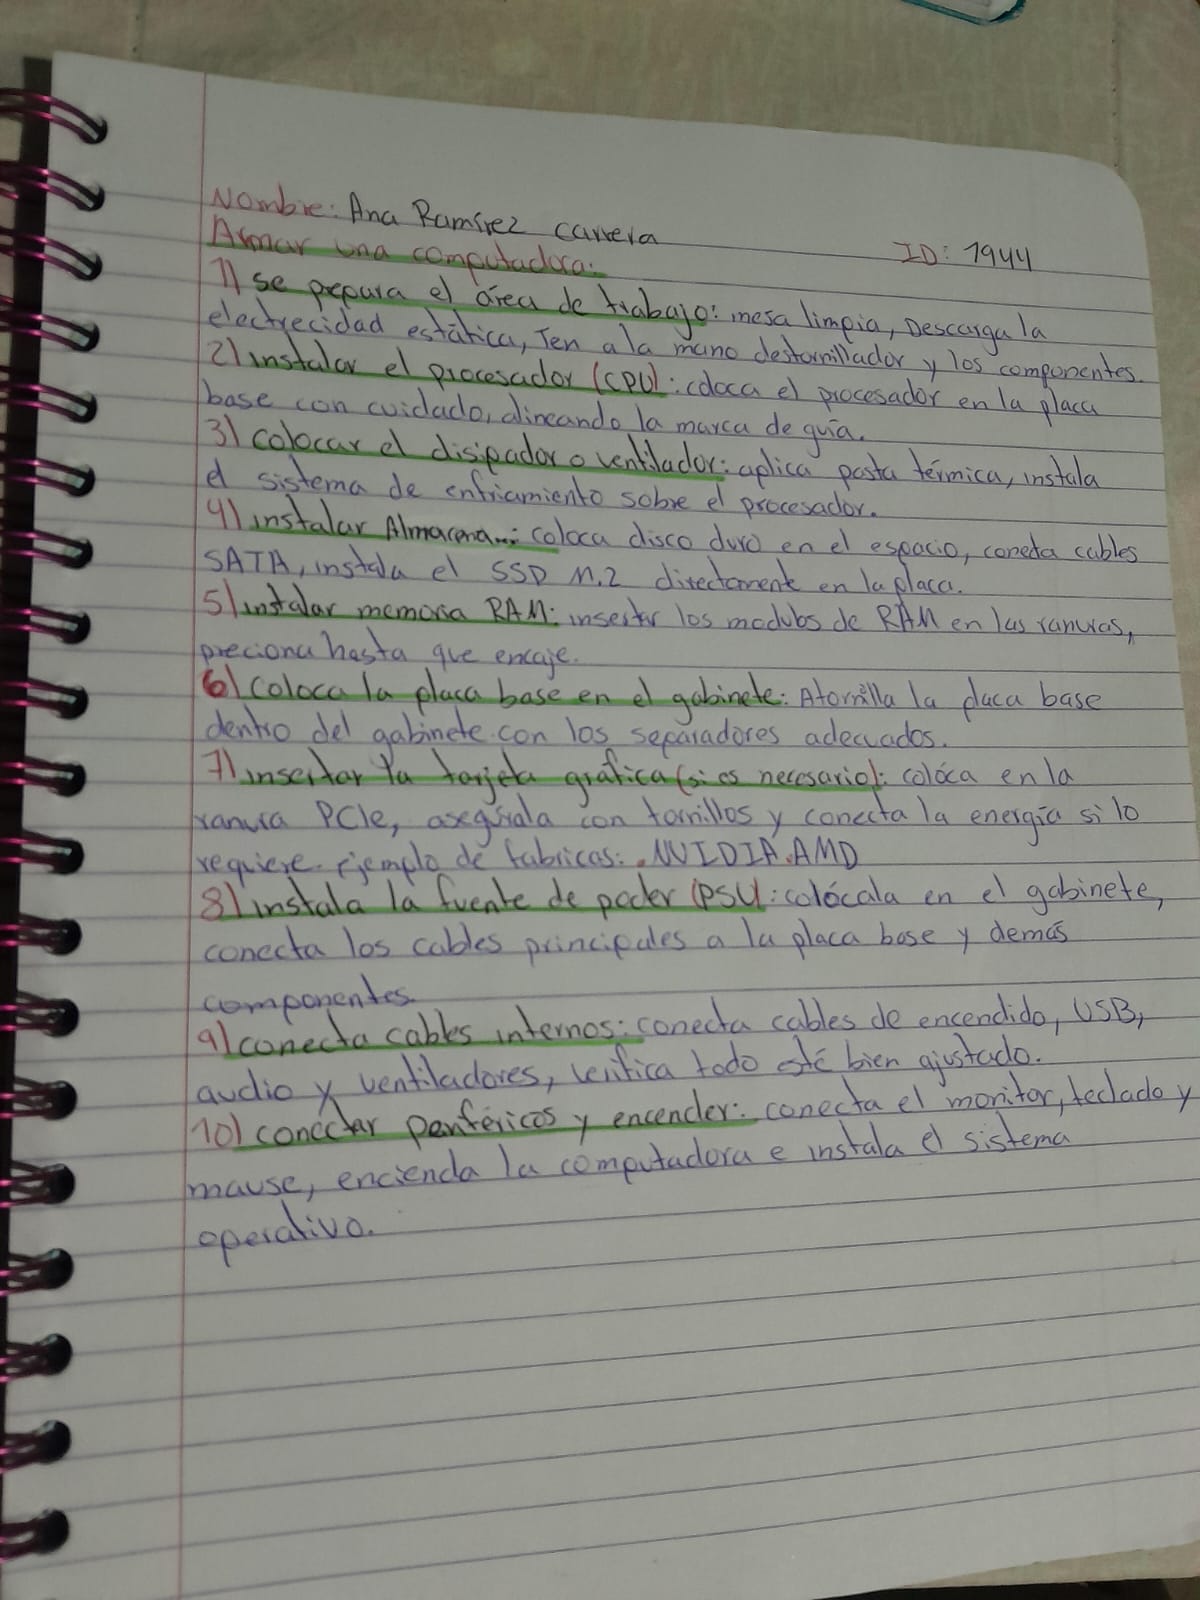 Nombre: Ana Ramírez Carrera
ID: 1944
Armar una computadora:
1) se prepara el área de trabajo: mesa limpia, Descarga la
electrecidad estática, Ten a la mano destornillador y los componentes.
2) instalar el procesador (CPU): coloca el procesador en la placa
base con cuidado, alineando la marca de guía.
3) colocar el disipador o ventilador: aplica pasta térmica, instala
el sistema de enfriamiento sobre el procesador.
4) instalar Almacena...: coloca disco duro en el espacio, conecta cables
SATA, instala el SSD M.2 directamente en la placa.
5) instalar memoria RAM: insertar los modulos de RAM en las ranuras,
preciona hasta que encaje.
6) Coloca la placa base en el gabinete: Atornilla la placa base
dentro del gabinete con los separadores adecuados.
7) insertar la tarjeta gráfica (si es necesario): colóca en la
ranura PCIe, asegúrala con tornillos y conecta la energía si lo
requiere. Ejemplo de fabricas: .NVIDIA.AMD
8) instala la fuente de poder (PSU: colócala en el gabinete,
conecta los cables principales a la placa base y demás
componentes.
9) conecta cables internos: conecta cables de encendido, USB,
audio y ventiladores, verifica todo esté bien ajustado.
10) conectar periféricos y encender: conecta el monitor, teclado y
mause, encienda la computadora e instala el sistema
operativo.